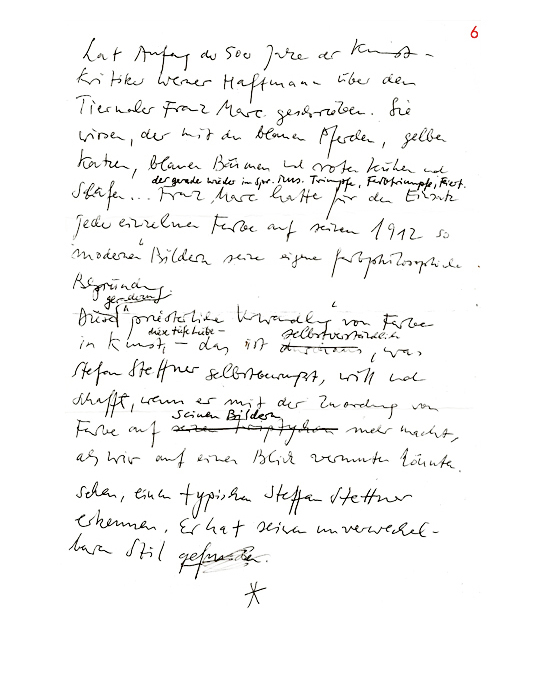 6
hat Anfang der 50er Jahre der Kunst-
kritiker Werner Haftmann über den
Tiermaler Franz Marc geschrieben. Sie
wissen, der mit den blauen Pferden, gelben
Katzen, blauen Bäumen und roten Kühen und
der gerade wieder im Spr. Mus. Triumphe, Farbtriumphe, feiert.
Schafen... Franz Marc hatte für den Einsatz
jeder einzelnen Farbe auf seinen 1912 so
modernen Bildern seine eigene farbphilosophische
Begründung.
geradezu
Diese priesterliche Verwandlung von Farbe
diese tiefe Liebe - selbstverständlich
in Kunst, - das ist, was
Stefan Stettner selbstbewusst, will und
schafft, wenn er mit der Zuordnung von
seinen Bildern
Farbe auf seinen Triptychon mehr macht,
als wir auf einen Blick vermuten könnten.
schon, einen typischen Steffan Stettner
erkennen. Er hat seinen unverwechsel-
baren Stil gefunden.